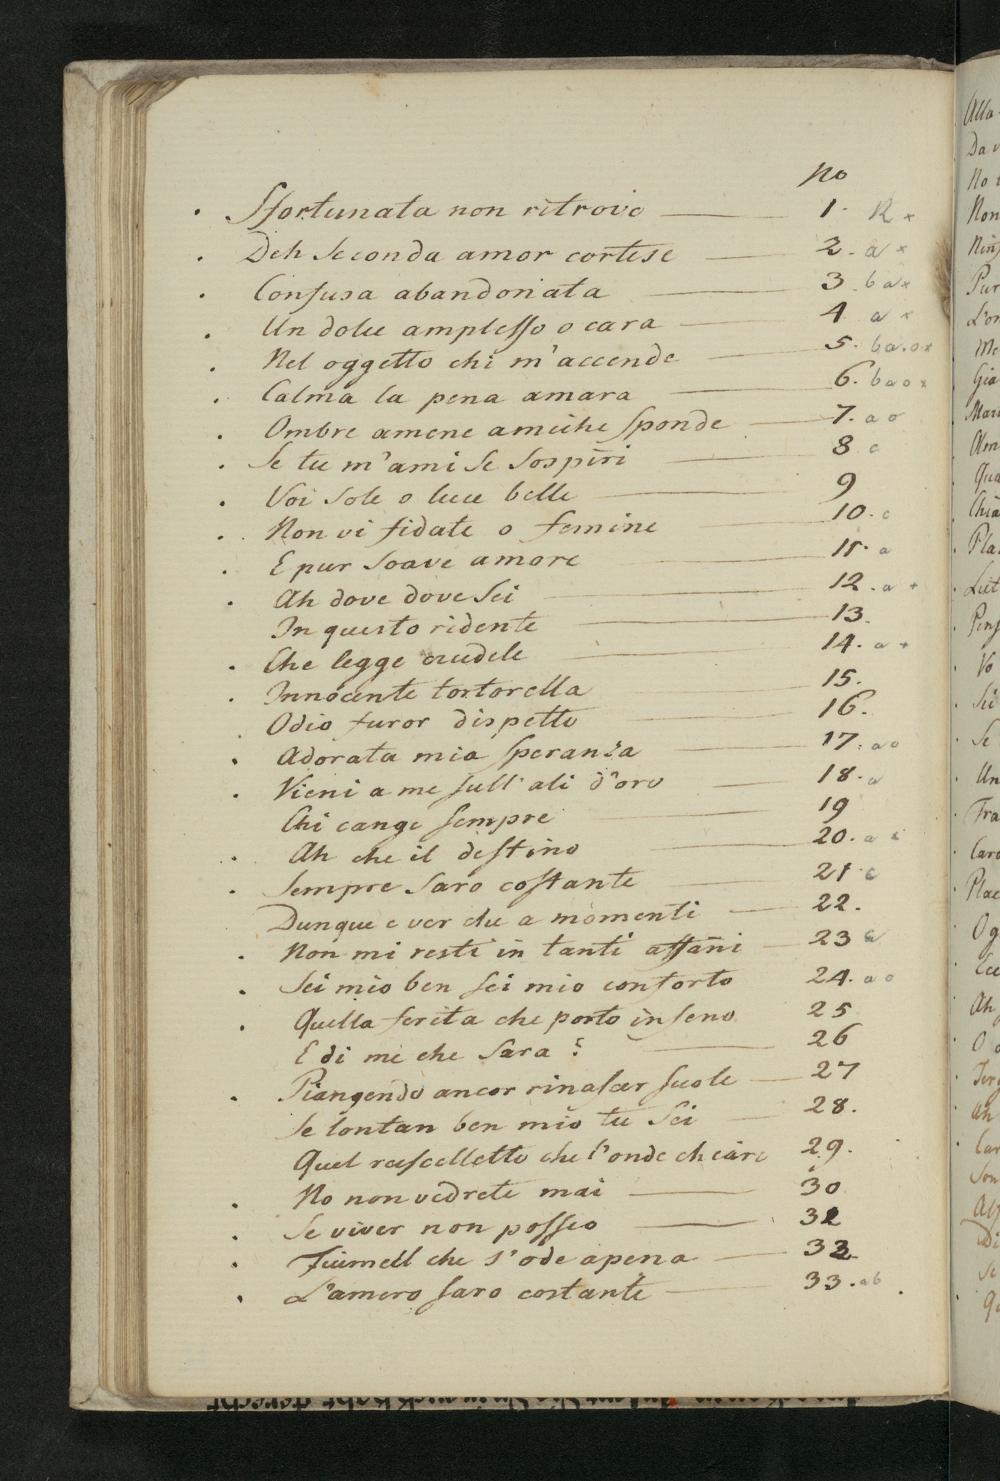 No
Sfortunata non ritrovo 1. R x
Deh seconda amor cortese 2. a x
Confusa abandonata 3. b a x
Un dolce amplesso o cara 4 a x
Nel oggetto chi m'accende 5. b a. o x
Calma la pena amara 6. b a o x
Ombre amene amiche sponde 7. a o
Se tu m'ami se sospiri 8 c
Voi sole o luce belle 9
Non vi fidate o femine 10. c
E pur soave amore 11. a
Ah dove dove sei 12. a +
In questo ridente 13.
Che legge crudele 14. a +
Innocente tortorella 15.
Odio furor dispetto 16.
Adorata mia speranza 17. a o
Vieni a me sull' ali d'oro 18. a
Chi cange sempre 19
Ah che il destino 20. a
Sempre saro costante 21. c
Dunque e ver che a momenti 22.
Non mi resti in tanti affani 23
Sei mio ben sei mio conforto 24. a o
Quella ferita che porto in seno 25
E di me che sara ? 26
Piangendo ancor rinascer suole 27
Se lontan ben mio tu sei 28.
Quel ruscelletto che l'onde chiare 29.
No non vedrete mai 30
Se viver non posseo 31
Fiumell che s'ode apena 32
L'amero saro costante 33. a b
Alla
Da v
No
Non
Ninf
Pur
L'on
Me
Gia
Mari
Alm
Qua
Chia
Pla
Lut
Pens
Vo
Sei
Se
Un
Fra
Caro
Plac
Og
Ecc
Ah
O
Ter
Ah
Car
Son
Di
Se